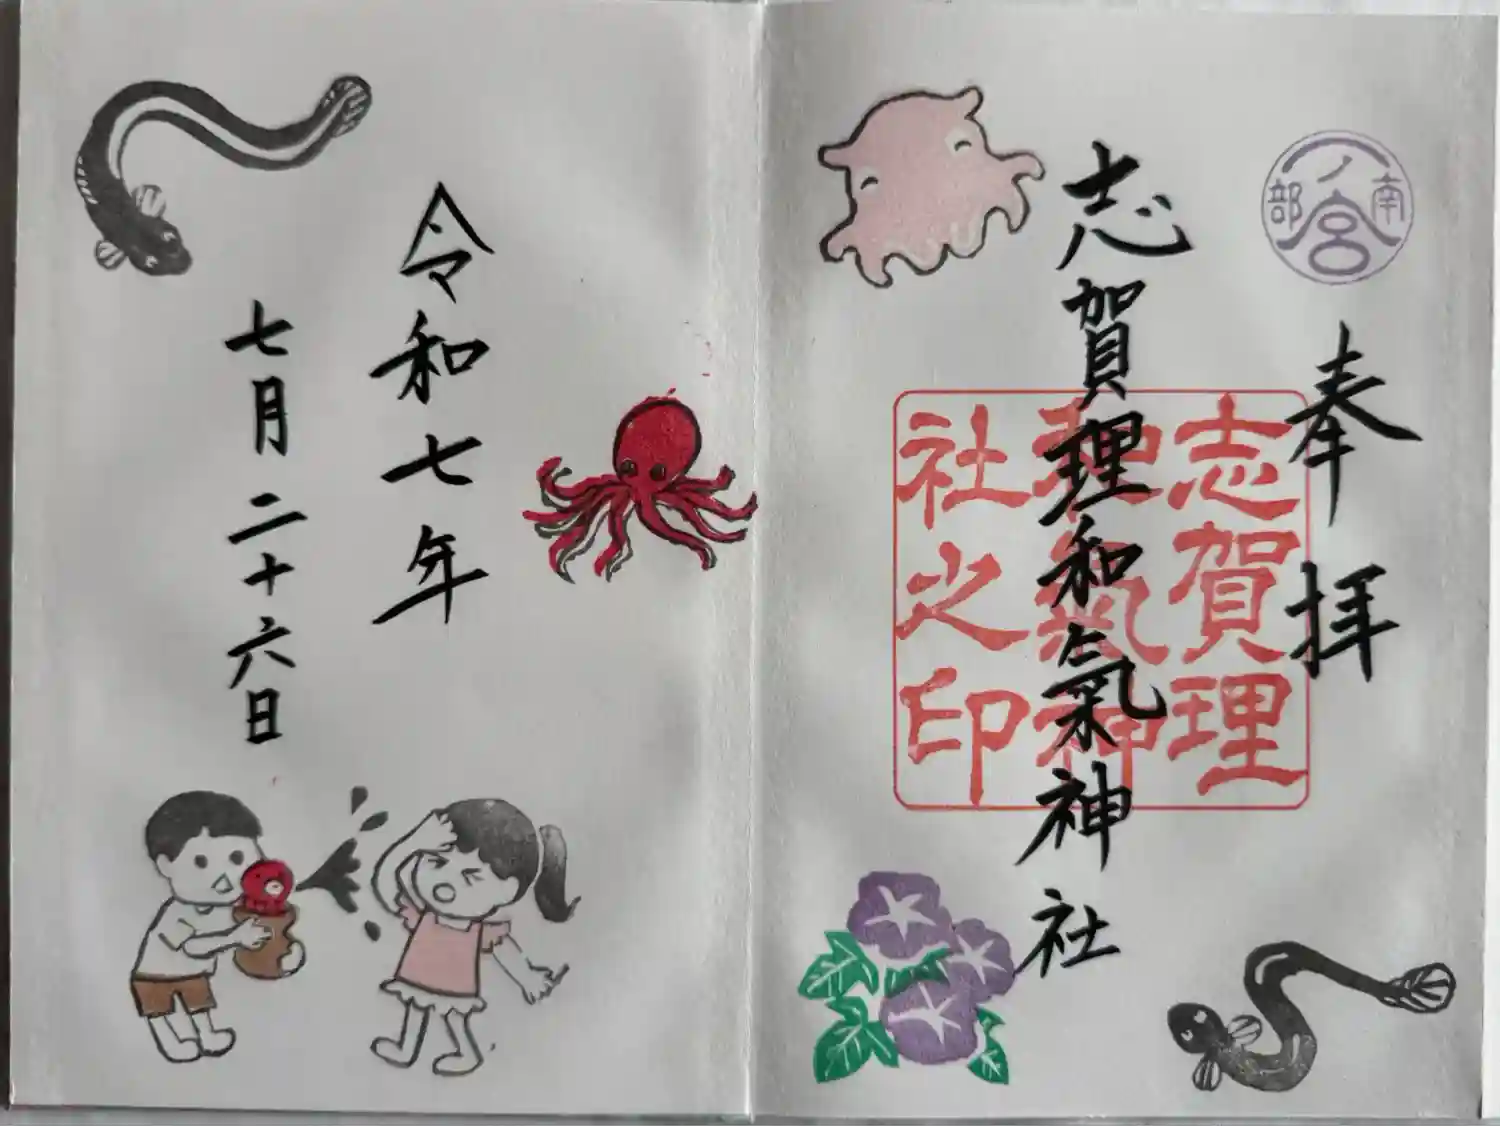 南部一ノ宮
奉拝
志賀理和氣神社
志賀理
和氣神
社之印
令和七年
七月二十六日